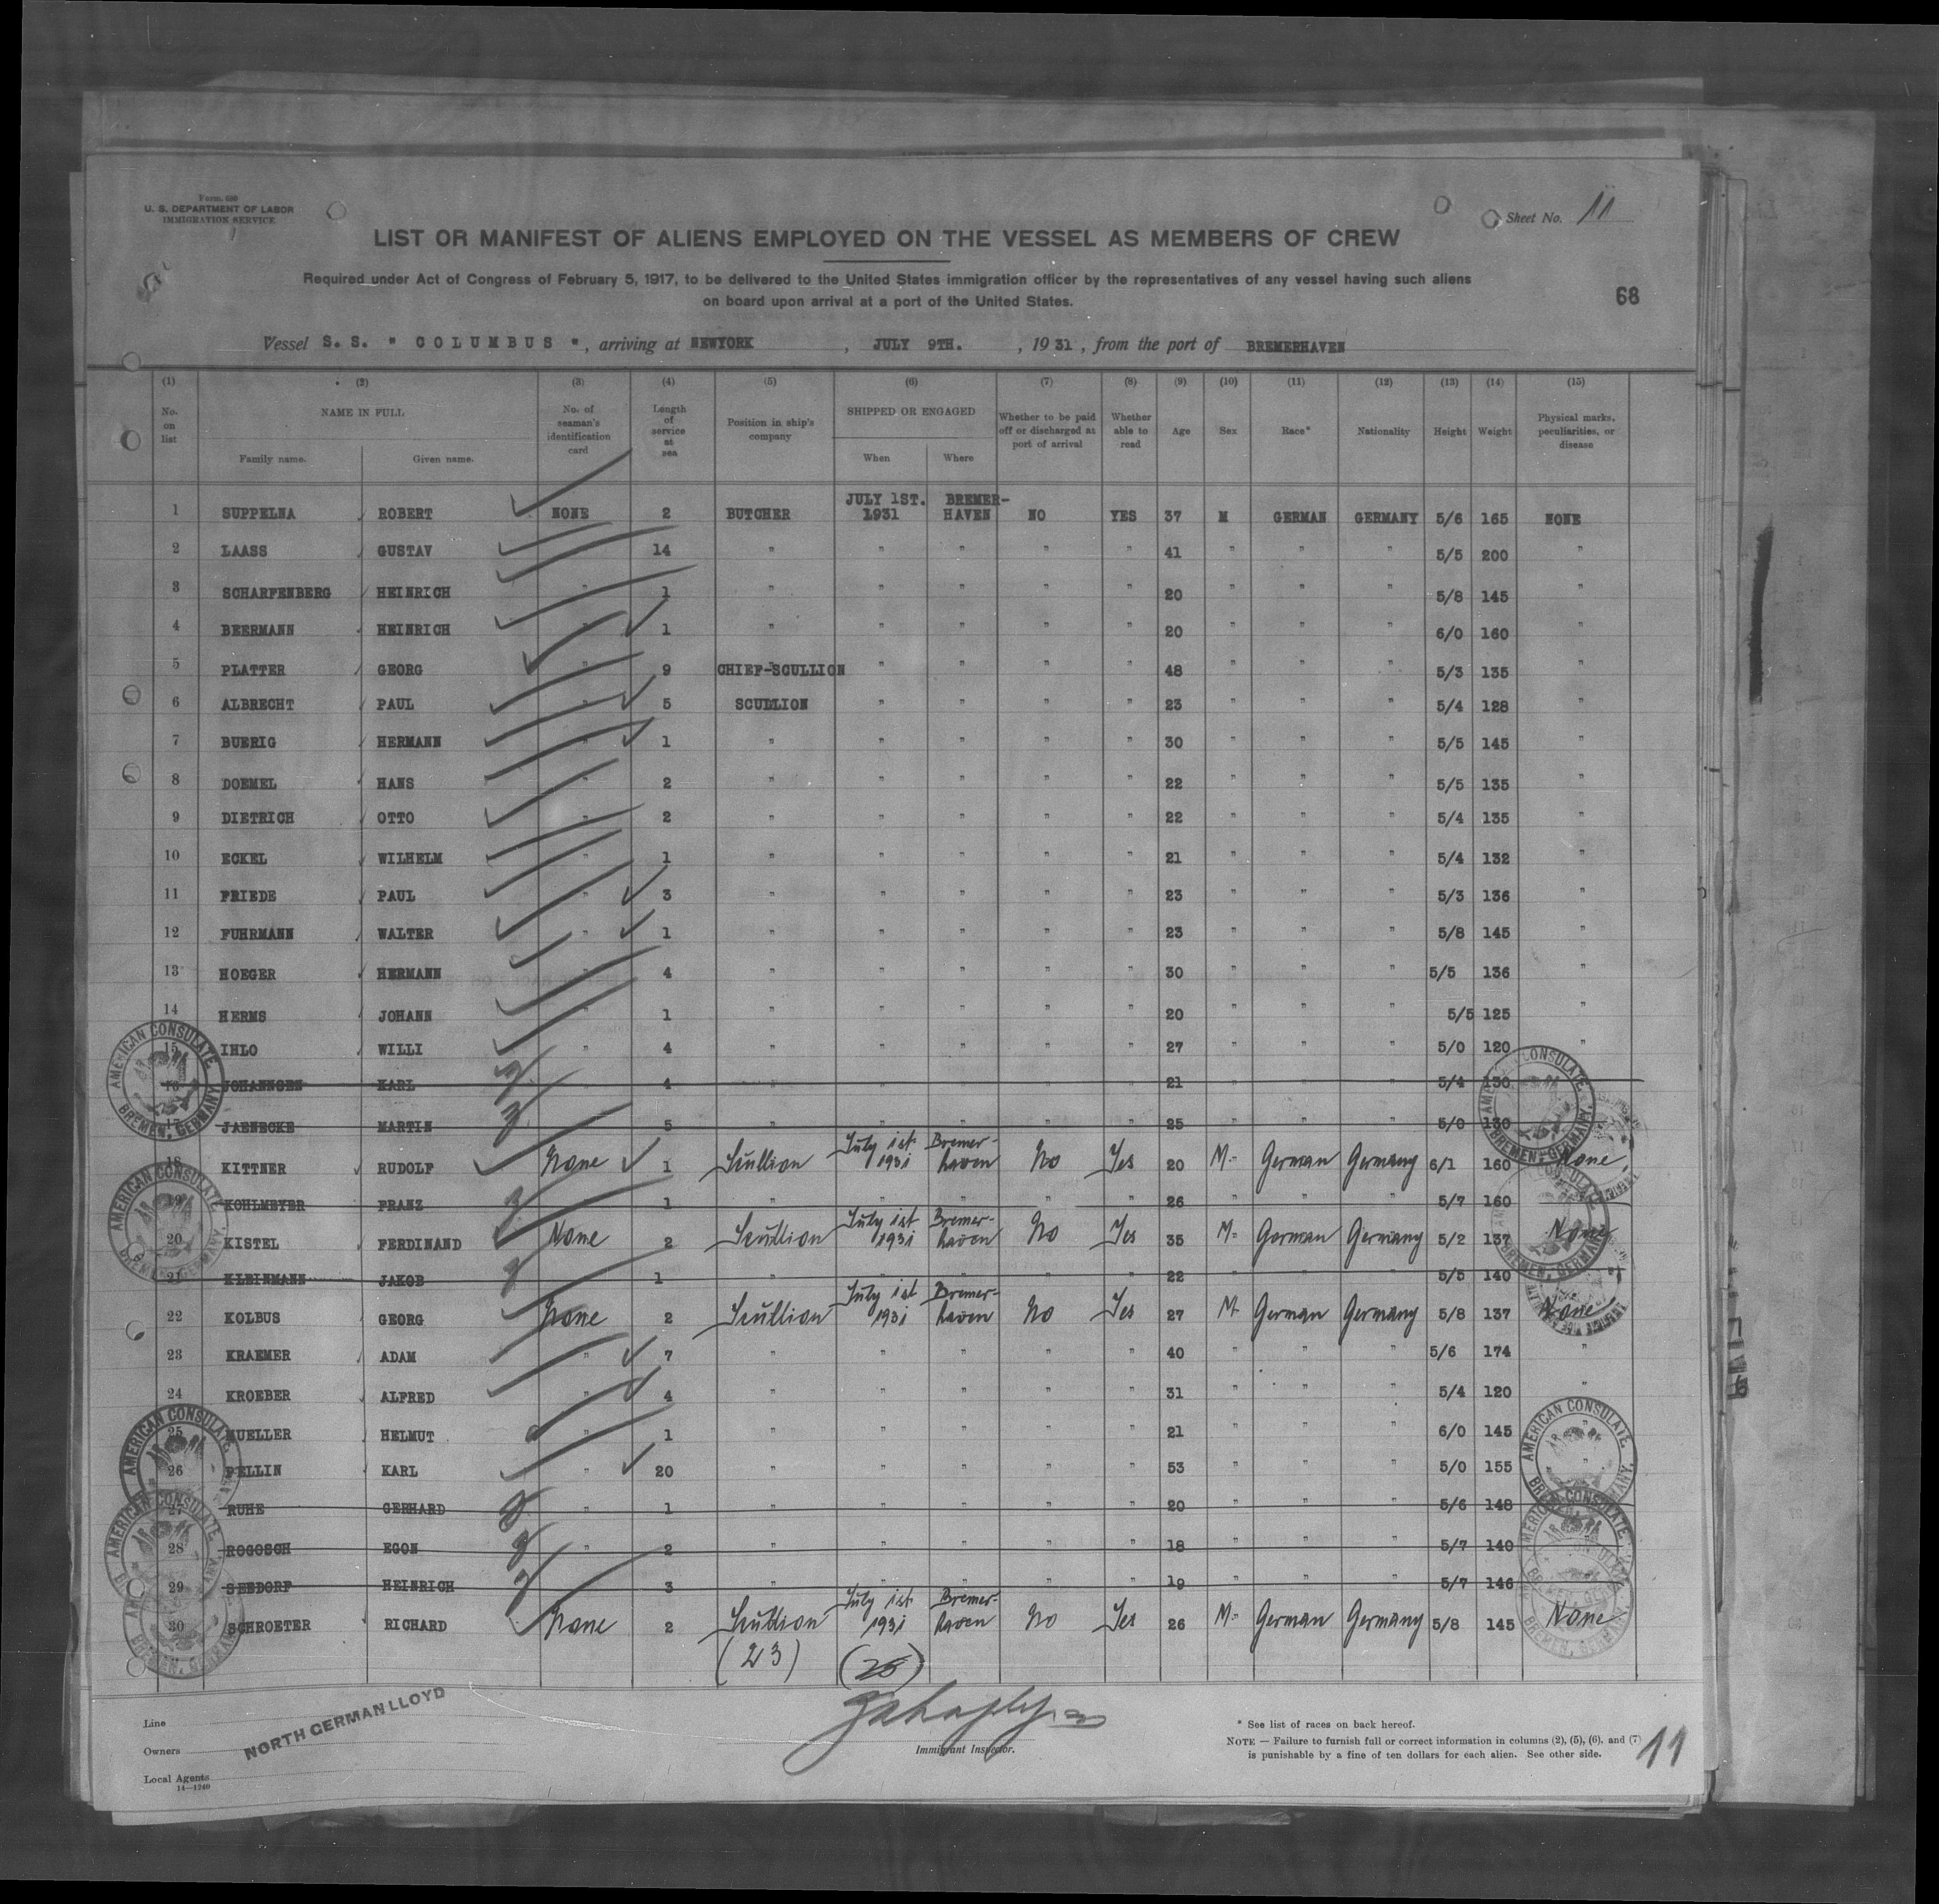 Form 680
U. S. DEPARTMENT OF LABOR
IMMIGRATION SERVICE
Sheet No. 11
LIST OR MANIFEST OF ALIENS EMPLOYED ON THE VESSEL AS MEMBERS OF CREW
Required under Act of Congress of February 5, 1917, to be delivered to the United States immigration officer by the representatives of any vessel having such aliens
on board upon arrival at a port of the United States.
68
Vessel S. S. " COLUMBUS ", arriving at NEWYORK, JULY 9TH., 1931, from the port of BREMERHAVEN
(1) (2) (3) (4) (5) (6) (7) (8) (9) (10) (11) (12) (13) (14) (15)
No. on list NAME IN FULL Family name. Given name. No. of seaman's identification card Length of service at sea Position in ship's company SHIPPED OR ENGAGED When Where Whether to be paid off or discharged at port of arrival Whether able to read Age Sex Race* Nationality Height Weight Physical marks, peculiarities, or disease
1 SUPPELNA ROBERT NONE 2 BUTCHER JULY 1ST. 1931 BREMER-HAVEN NO YES 37 M GERMAN GERMANY 5/6 165 NONE
2 LAASS GUSTAV 14 " " " " " 41 " " " 5/5 200 "
3 SCHARFENBERG HEINRICH " 1 " " " " " 20 " " " 5/8 145 "
4 BEERMANN HEINRICH " 1 " " " " " 20 " " " 6/0 160 "
5 PLATTER GEORG " 9 CHIEF-SCULLION " " " " 48 " " " 5/3 135 "
6 ALBRECHT PAUL " 5 SCULLION " " " " 23 " " " 5/4 128 "
7 BUERIG HERMANN " 1 " " " " " 30 " " " 5/5 145 "
8 DOEMEL HANS " 2 " " " " " 22 " " " 5/5 135 "
9 DIETRICH OTTO " 2 " " " " " 22 " " " 5/4 135 "
10 ECKEL WILHELM " 1 " " " " " 21 " " " 5/4 132 "
11 FRIEDE PAUL " 3 " " " " " 23 " " " 5/3 136 "
12 FUHRMANN WALTER " 1 " " " " " 23 " " " 5/8 145 "
13 HOEGER HERMANN " 4 " " " " " 30 " " " 5/5 136 "
14 HERMS JOHANN " 1 " " " " " 20 " " " 5/5 125 "
15 IHLO WILLI " 4 " " " " " 27 " " " 5/0 120 "
16 JOHANNSEN KARL 4 " " " " " 21 " " " 5/4 130
17 JAENECKE MARTIN 5 " " " " " 25 " " " 5/0 130
18 KITTNER RUDOLF None 1 Scullion July 1st 1931 Bremer-haven No Yes 20 M. German Germany 6/1 160 None
19 KOHLMEYER FRANZ 1 " " " " " 26 " " " 5/7 160
20 KISTEL FERDINAND None 2 Scullion July 1st 1931 Bremer-haven No Yes 35 M. German Germany 5/2 137 None
21 KLEINMANN JAKOB 1 " " " " " 22 " " " 5/5 140
22 KOLBUS GEORG None 2 Scullion July 1st 1931 Bremer-haven No Yes 27 M. German Germany 5/8 137 None
23 KRAEMER ADAM " 7 " " " " " 40 " " " 5/6 174 "
24 KROEBER ALFRED " 4 " " " " " 31 " " " 5/4 120 "
25 MUELLER HELMUT " 1 " " " " " 21 " " " 6/0 145 "
26 PELLIN KARL " 20 " " " " " 53 " " " 5/0 155 "
27 RUHE GERHARD " 1 " " " " " 20 " " " 5/6 148
28 ROGOSCH EGON " 2 " " " " " 18 " " " 5/7 140
29 SEEDORF HEINRICH 3 " " " " " 19 " " " 5/7 146
30 SCHROETER RICHARD None 2 Scullion July 1st 1931 Bremer-haven No Yes 26 M. German Germany 5/8 145 None
(23)
AMERICAN CONSULATE
BREMEN, GERMANY.
AMERICAN CONSULATE
BREMEN, GERMANY.
AMERICAN CONSULATE
AMERICAN CONSULATE
BREMEN, GERMANY.
Line
Owners
Local Agents
14—1240
NORTH GERMAN LLOYD
Immigrant Inspector.
* See list of races on back hereof.
NOTE — Failure to furnish full or correct information in columns (2), (5), (6), and (7)
is punishable by a fine of ten dollars for each alien. See other side.
11